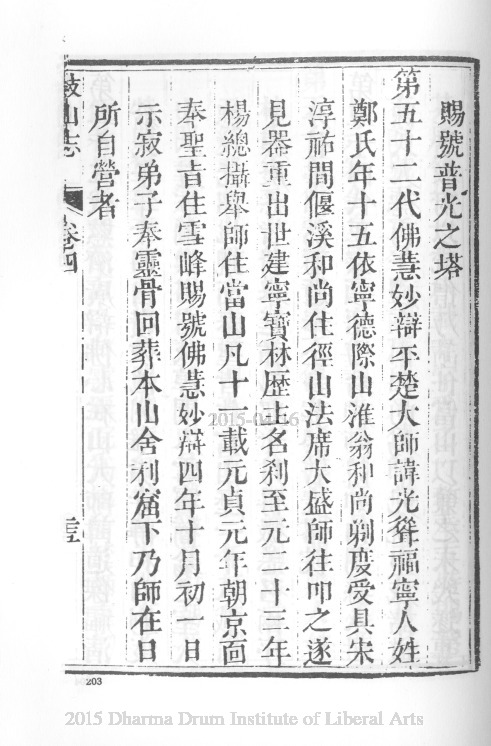 賜號普光之塔
第五十二代佛慧妙辯平楚大師諱光聳福寧人姓
鄭氏年十五依寧德際山淮翁和尚剃度受具宋
淳祐間偃溪和尚住徑山法席大盛師往叩之遂
見器重出世建寧寶林歷主名剎至元二十三年
楊總攝舉師住當山凡十一載元貞元年朝京面
奉聖旨住雪峰賜號佛慧妙辯四年十月初一日
示寂弟子奉靈骨回葬本山舍利窟下乃師在日
所自營者
鼓山志
卷四
203
2015 Dharma Drum Institute of Liberal Arts